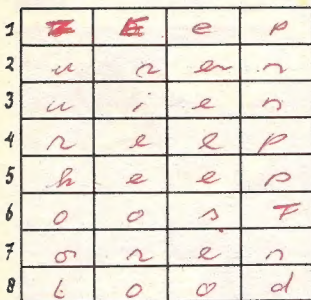 1 Z E e p
2 u r e n
3 u i e n
4 r e e p
5 h e e s
6 o o s T
7 o r e n
8 l o o d